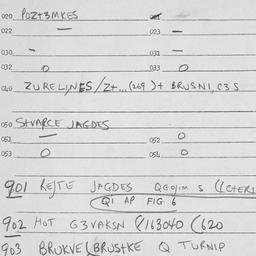 020 POZT3MKES
022 — 023 —
030 — 031 —
032 0 033 0
040 ZURELINES/Z+...(269)+ BRUSNI, C3S
050 STVARCE JAGDES
051 — 052 0
053 0 054 0
901 REJTE JAGDES S (LETERS
Q1 AP FIG 6
902 HOT G3VAKSN (163040 (620
903 BRUKVE (BRUSTKE Q TURNIP